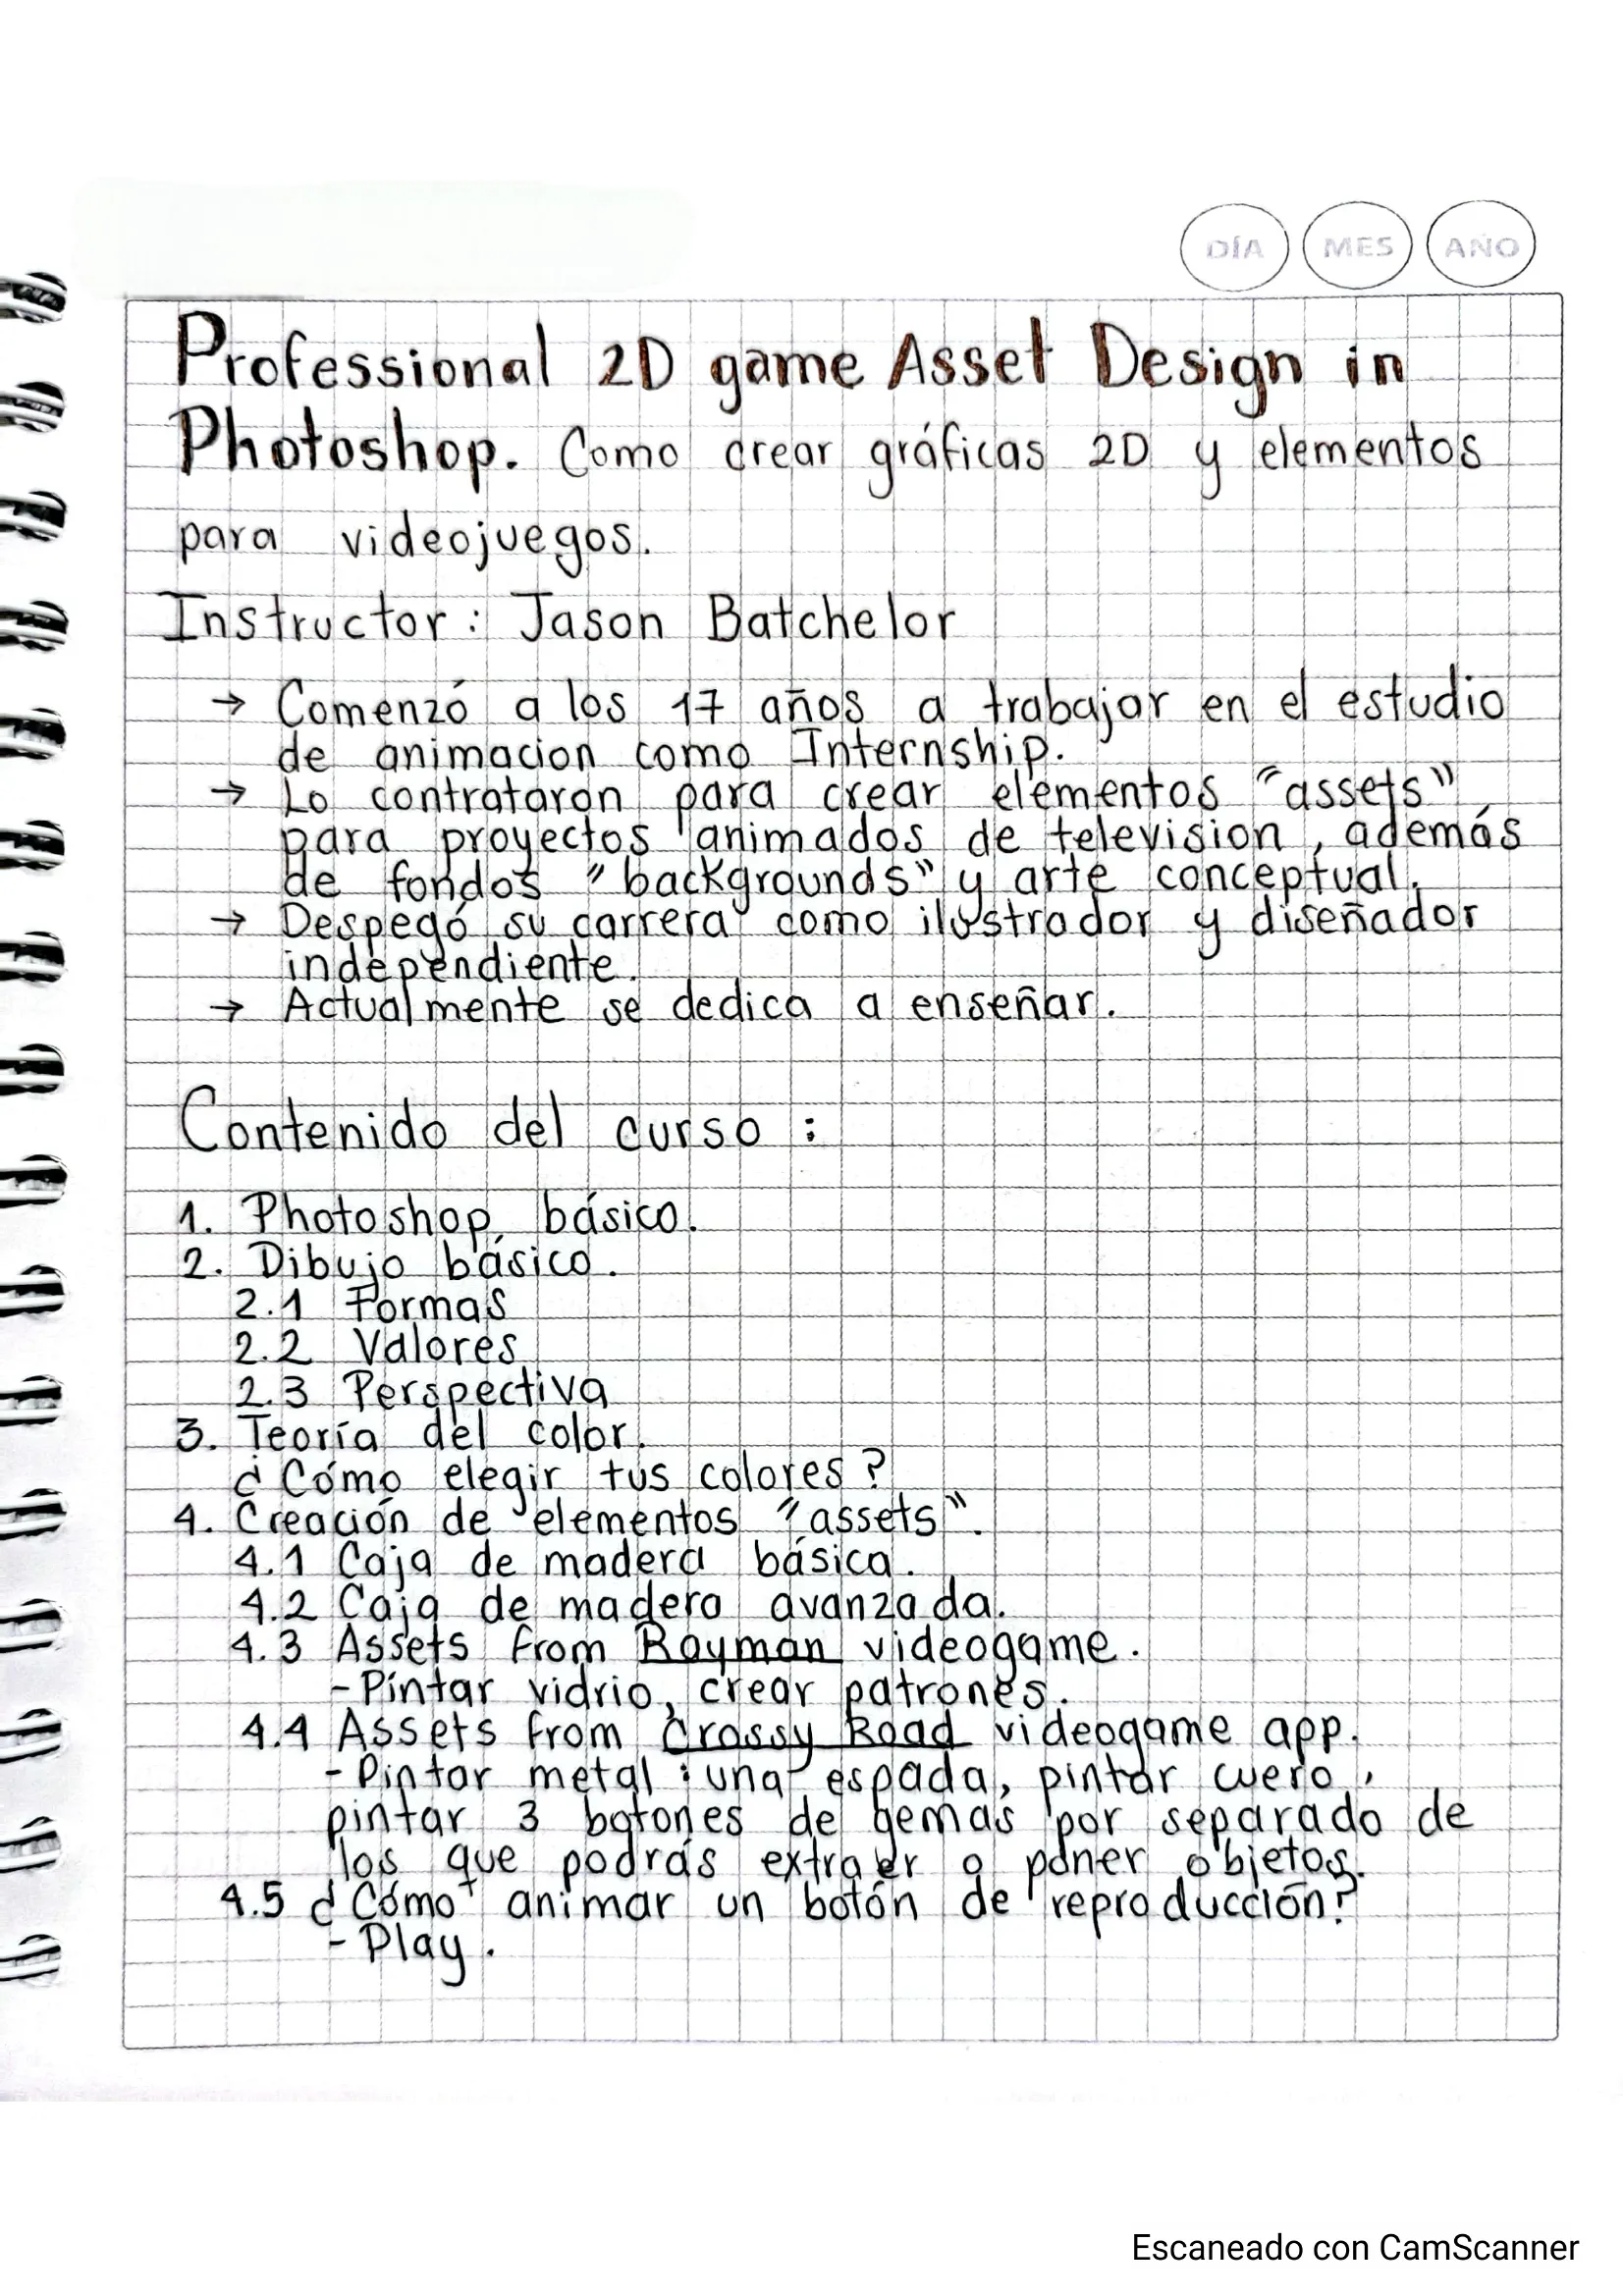 DÍA MES AÑO
Professional 2D game Asset Design in
Photoshop. Como crear gráficas 2D y elementos
para videojuegos.
Instructor: Jason Batchelor
→ Comenzó a los 17 años a trabajar en el estudio
de animacion como Internship.
→ Lo contrataron para crear elementos "assets"
para proyectos animados de television, además
de fondos "backgrounds" y arte conceptual.
→ Despegó su carrera como ilustrador y diseñador
independiente.
→ Actualmente se dedica a enseñar.
Contenido del curso:
1. Photoshop básico.
2. Dibujo básico.
2.1 Formas
2.2 Valores
2.3 Perspectiva
3. Teoría del color.
¿Cómo elegir tus colores?
4. Creación de elementos "assets".
4.1 Caja de madera básica.
4.2 Caja de madera avanzada.
4.3 Assets from Rayman videogame.
- Pintar vidrio, crear patrones.
4.4 Assets from Crossy Road videogame app.
- Pintar metal: una espada, pintar cuero,
pintar 3 botones de gemas por separado de
los que podrás extraer o poner objetos.
4.5 ¿Cómo animar un botón de reproducción?
- Play.
Escaneado con CamScanner